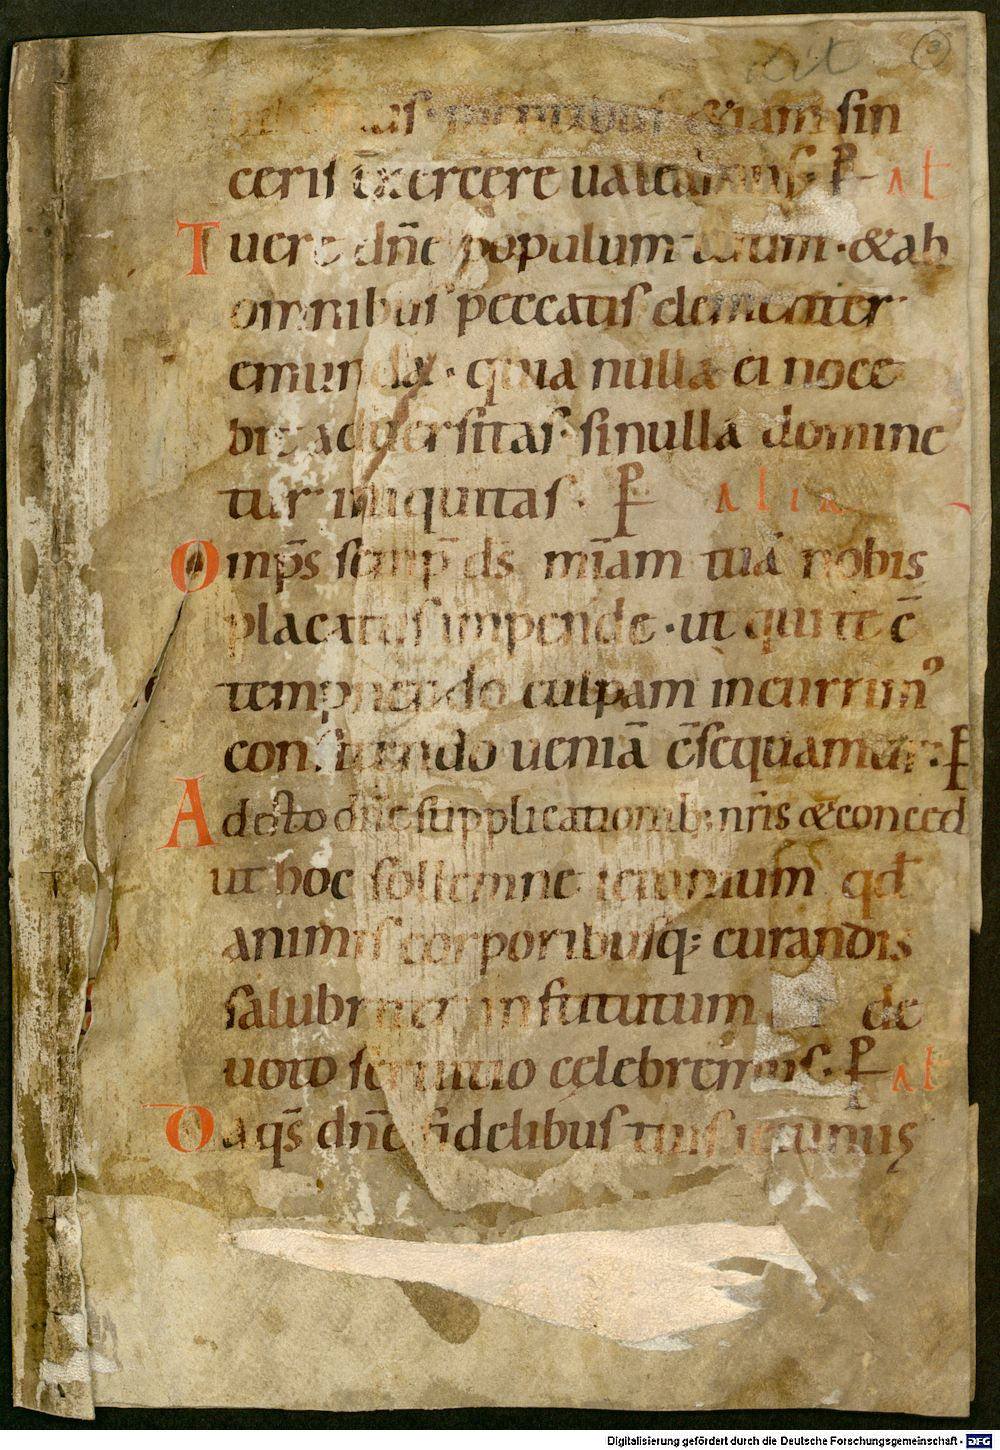 3
mentibus &iam sin
ceris exercere ualeamus· P̄ al
Tuere dn̄e populum tuum· &ab
omnibus peccatis clementer
emunda· quia nulla ei noce
bit aduersitas· si nulla domine
tur iniquitas· P̄ alia
Omps̄ semp̄ ds̄ mīam tuā nobis
placatus impende· ut qui te c̄
tempnendo culpam incurrim᾽
confitendo ueniā c̄sequamur· P̄
Adesto dn̄e supplicationib; nr̄is &conced
ut hoc sollemne ieiunium qd̄
animis corporibusq; curandis
salubriter institutum de
uoto seruitio celebremus· P̄ al
Da qs̄ dn̄e fidelibus tuis ieiuniis
Digitalisierung gefördert durch die Deutsche Forschungsgemeinschaft - DFG